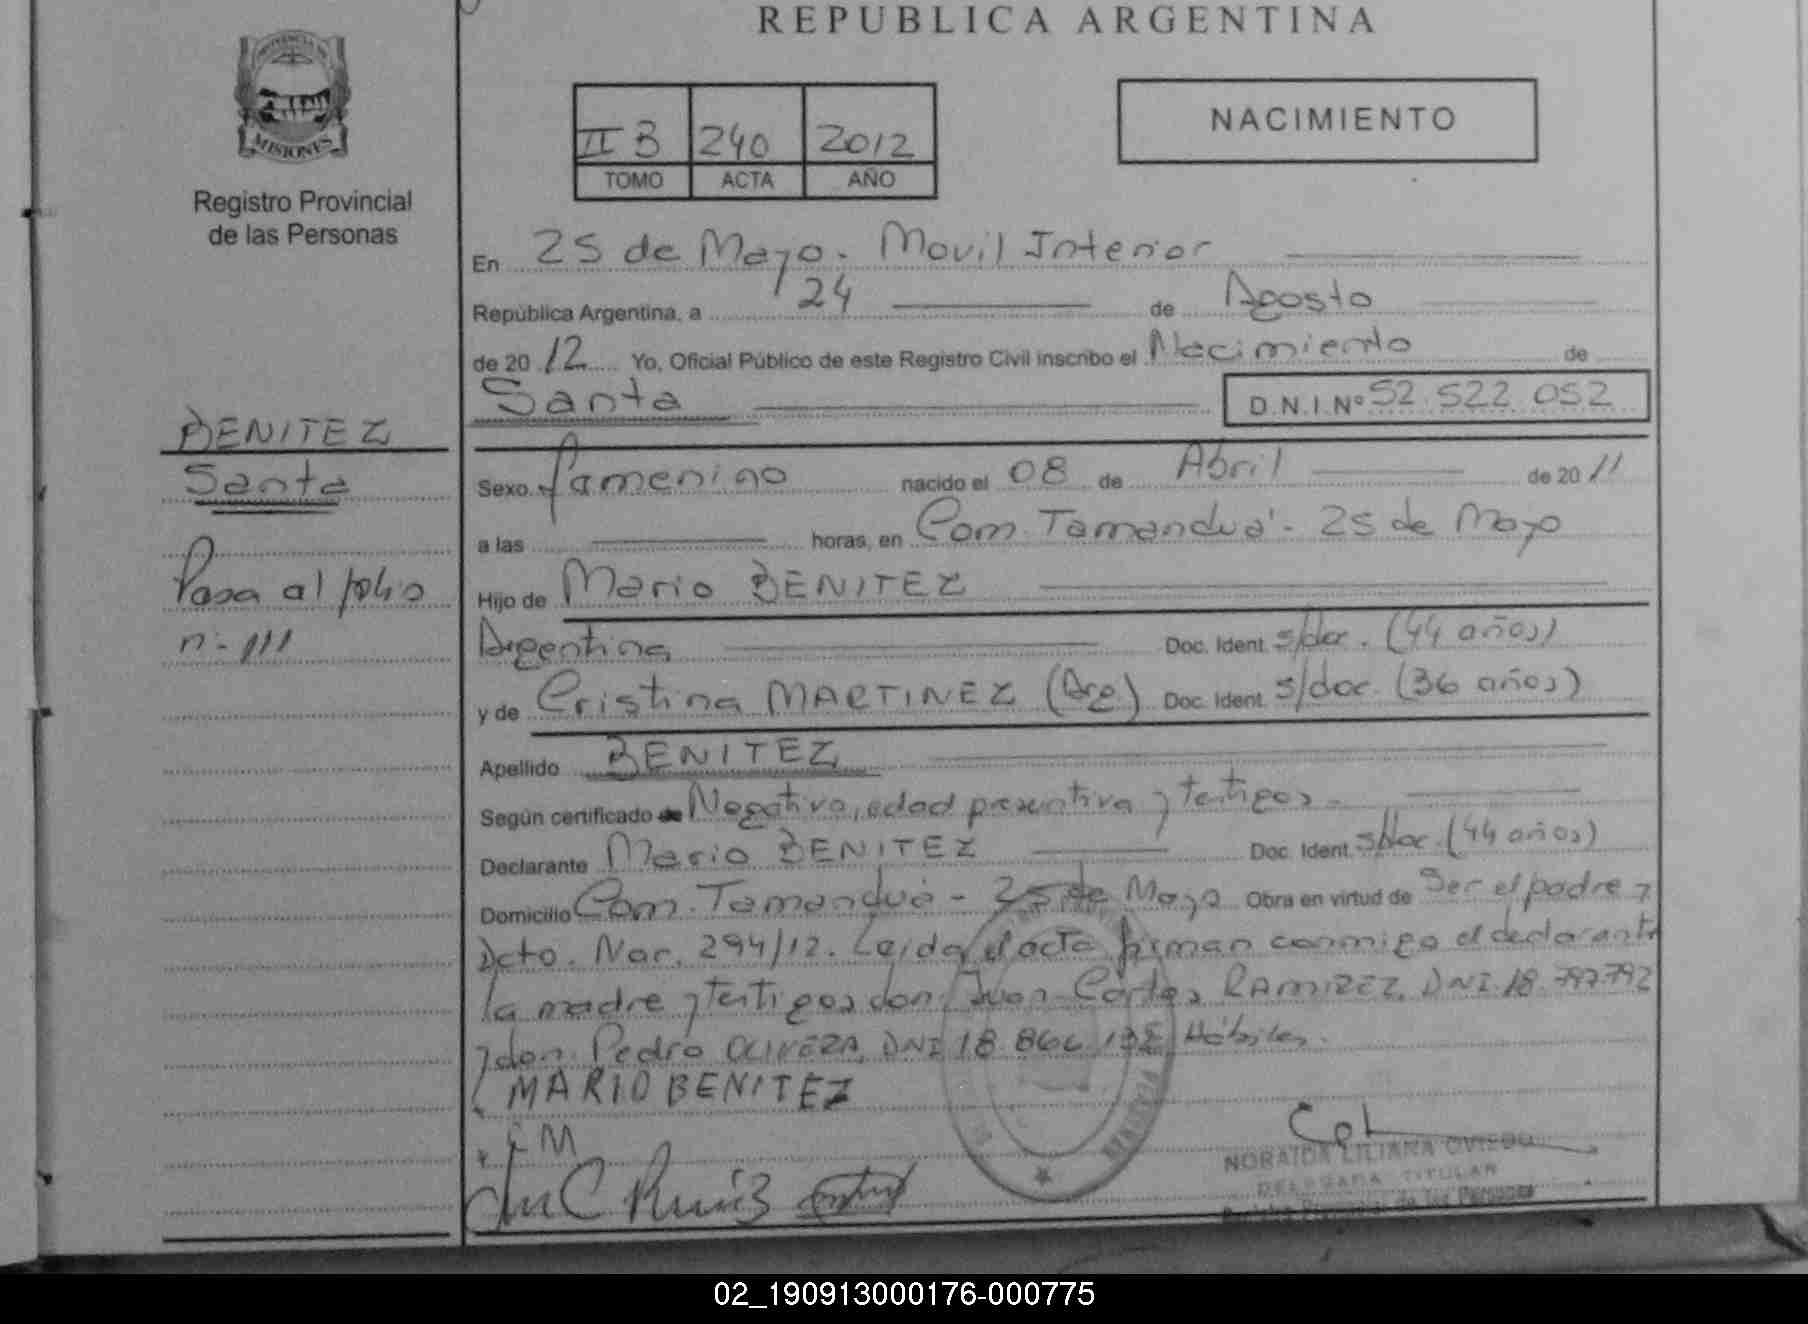 REPUBLICA ARGENTINA
PROVINCIA DE
MISIONES
Registro Provincial
de las Personas
II B 240 2012
TOMO ACTA AÑO
NACIMIENTO
En 25 de Mayo. Movil Interior
República Argentina, a 24 de Agosto
de 2012 Yo, Oficial Público de este Registro Civil inscribo el Nacimiento de
Santa D.N.I.Nº 52.522.052
BENITEZ
Santa
Pasa al folio
nº 111
Sexo femenino nacido el 08 de Abril de 2011
a las horas, en Com. Tamanduá - 25 de Mayo
Hijo de Mario BENITEZ
Argentina Doc. Ident. s/doc. (44 años)
y de Cristina MARTINEZ (Arg.) Doc. Ident. s/doc. (36 años)
Apellido BENITEZ
Según certificado de Negativo, edad presuntiva y testigos.
Declarante Mario BENITEZ Doc. Ident. s/doc. (44 años)
Domicilio Com. Tamanduá - 25 de Mayo Obra en virtud de Ser el padre y
Dcto. Nac. 294/12. Leida el acta firman conmigo el declarante
la madre y testigos don: Juan Carlos RAMIREZ, DNI 18.797.792
y don: Pedro OLIVERA, DNI 18.866. Hábiles.
MARIO BENITEZ
C M
NORAIDA LILIANA OVIEDO
DELEGADA TITULAR
Registro Provincial de las Personas
02_190913000176-000775